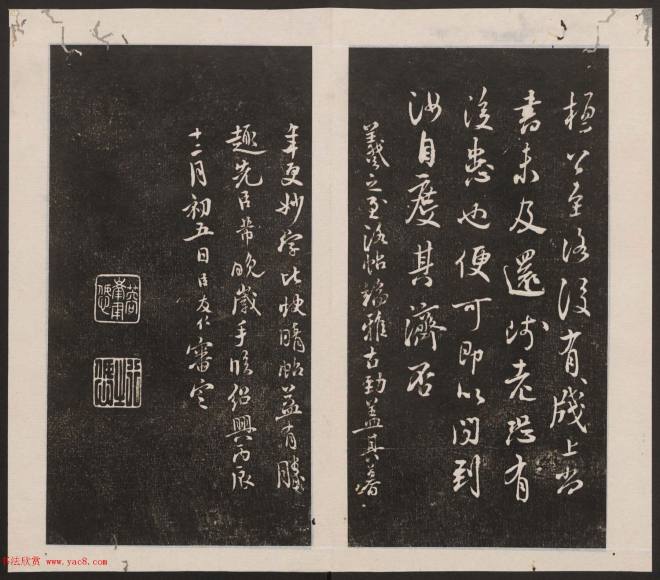 桓公至洛没有牋上当
书未及還以老恐有
後患也便可即以问到
汝自度其濟否
羲之至洛帖端雅古勁蓋其暮
年更妙学此快晴帖益有勝
趣先臣芾晚歲手 紹興丙辰
十二月初五日臣友仁審定
书法欣赏 www.yac8.com